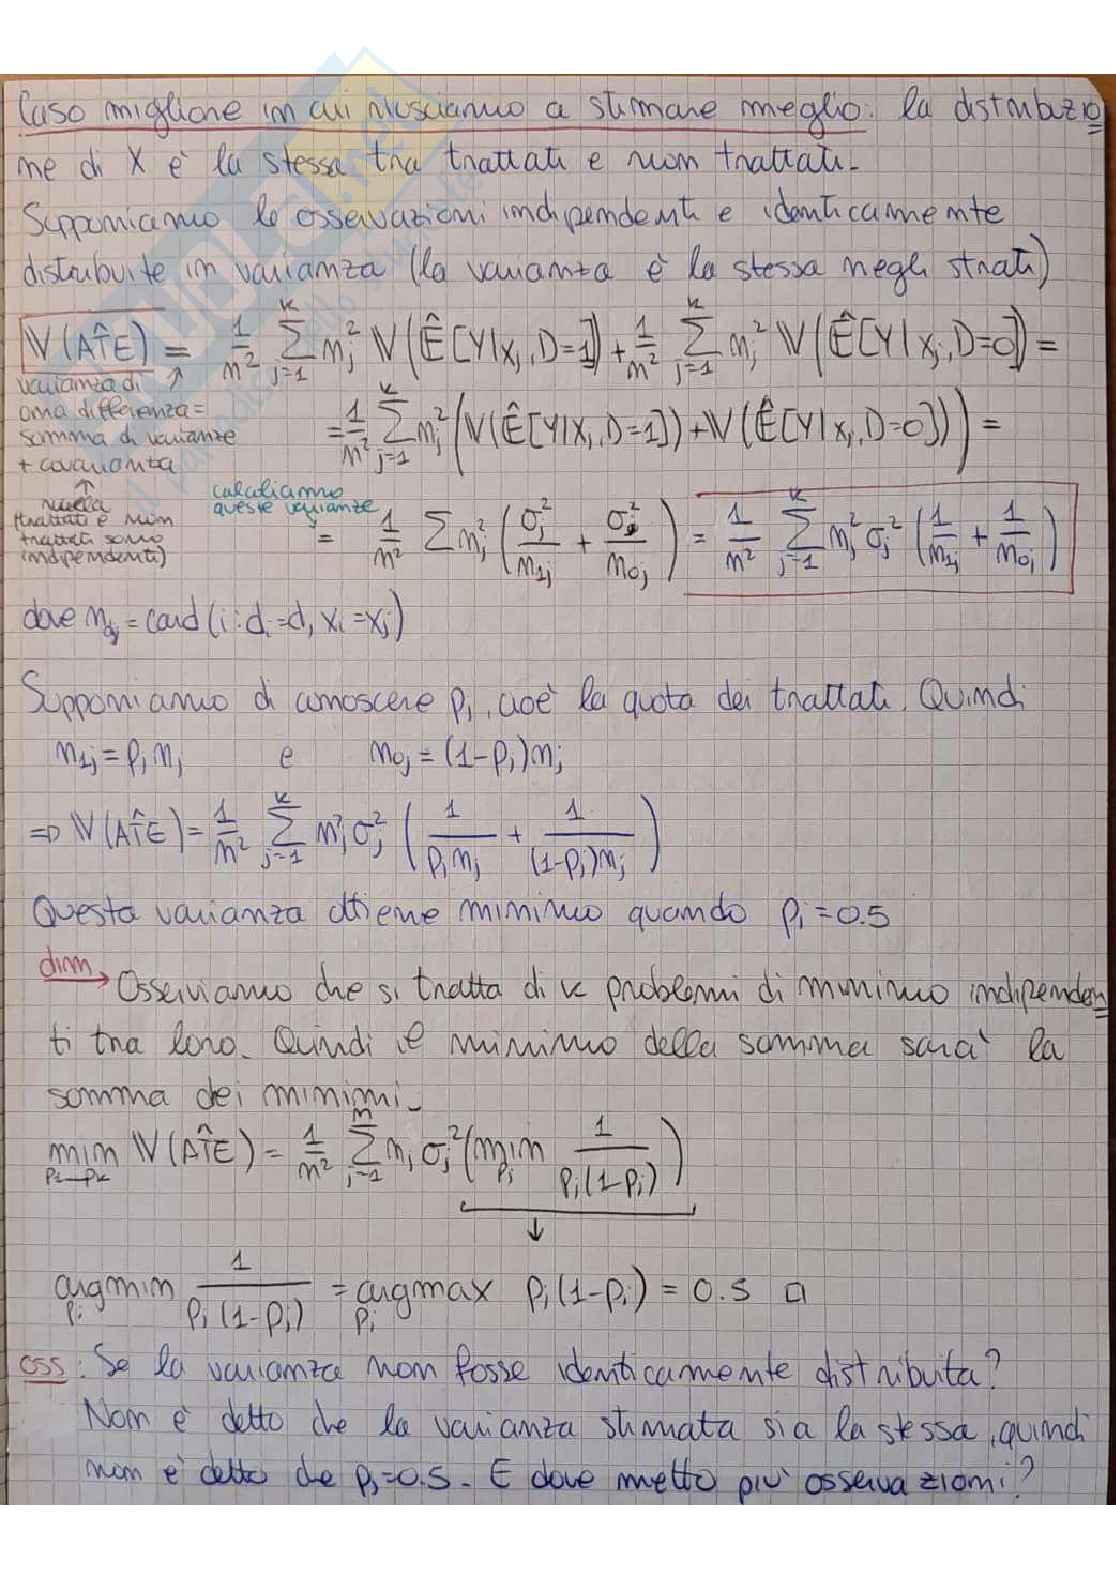 Caso migliore in cui riusciamo a stimare meglio: la distribuzio
ne di X è la stessa tra trattati e non trattati.
Supponiamo le osservazioni indipendenti e identicamente
distribuite in varianza (la varianza è la stessa negli strati)
V(AT̂E) = 1/n² Σ_{j=1}^{k} n_j² V(Ê[Y|x_j, D=1]) + 1/n² Σ_{j=1}^{k} n_j² V(Ê[Y|x_j, D=0]) =
varianza di
una differenza =
somma di varianze
+ covarianza
= 1/n² Σ_{j=1}^{k} n_j² (V(Ê[Y|x_j, D=1]) + V(Ê[Y|x_j, D=0])) =
↑
nulla
(trattati e non
trattati sono
indipendenti)
calcoliamo
queste varianze
= 1/n² Σ n_j² (σ_j²/n_{1j} + σ_j²/n_{0j}) = 1/n² Σ_{j=1}^{k} n_j² σ_j² (1/n_{1j} + 1/n_{0j})
dove n_{dj} = card(i : d_i = d, x_i = x_j)
Supponiamo di conoscere p_j, cioè la quota dei trattati. Quindi
n_{1j} = p_j n_j e n_{0j} = (1-p_j)n_j
=> V(AT̂E) = 1/n² Σ_{j=1}^{k} n_j² σ_j² (1/(p_j n_j) + 1/((1-p_j)n_j))
Questa varianza ottiene minimo quando p_j = 0.5
dim → Osserviamo che si tratta di k problemi di minimo indipenden
ti tra loro. Quindi il minimo della somma sarà la
somma dei minimi.
min_{p_1…p_k} V(AT̂E) = 1/n² Σ_{j=1}^{n} n_j σ_j² (min_{p_j} 1/(p_j(1-p_j)))
↓
argmin_{p_j} 1/(p_j(1-p_j)) = argmax_{p_j} p_j(1-p_j) = 0.5 □
oss: Se la varianza non fosse identicamente distribuita?
Non è detto che la varianza stimata sia la stessa, quindi
non è detto che p_j=0.5. E dove metto più osservazioni?